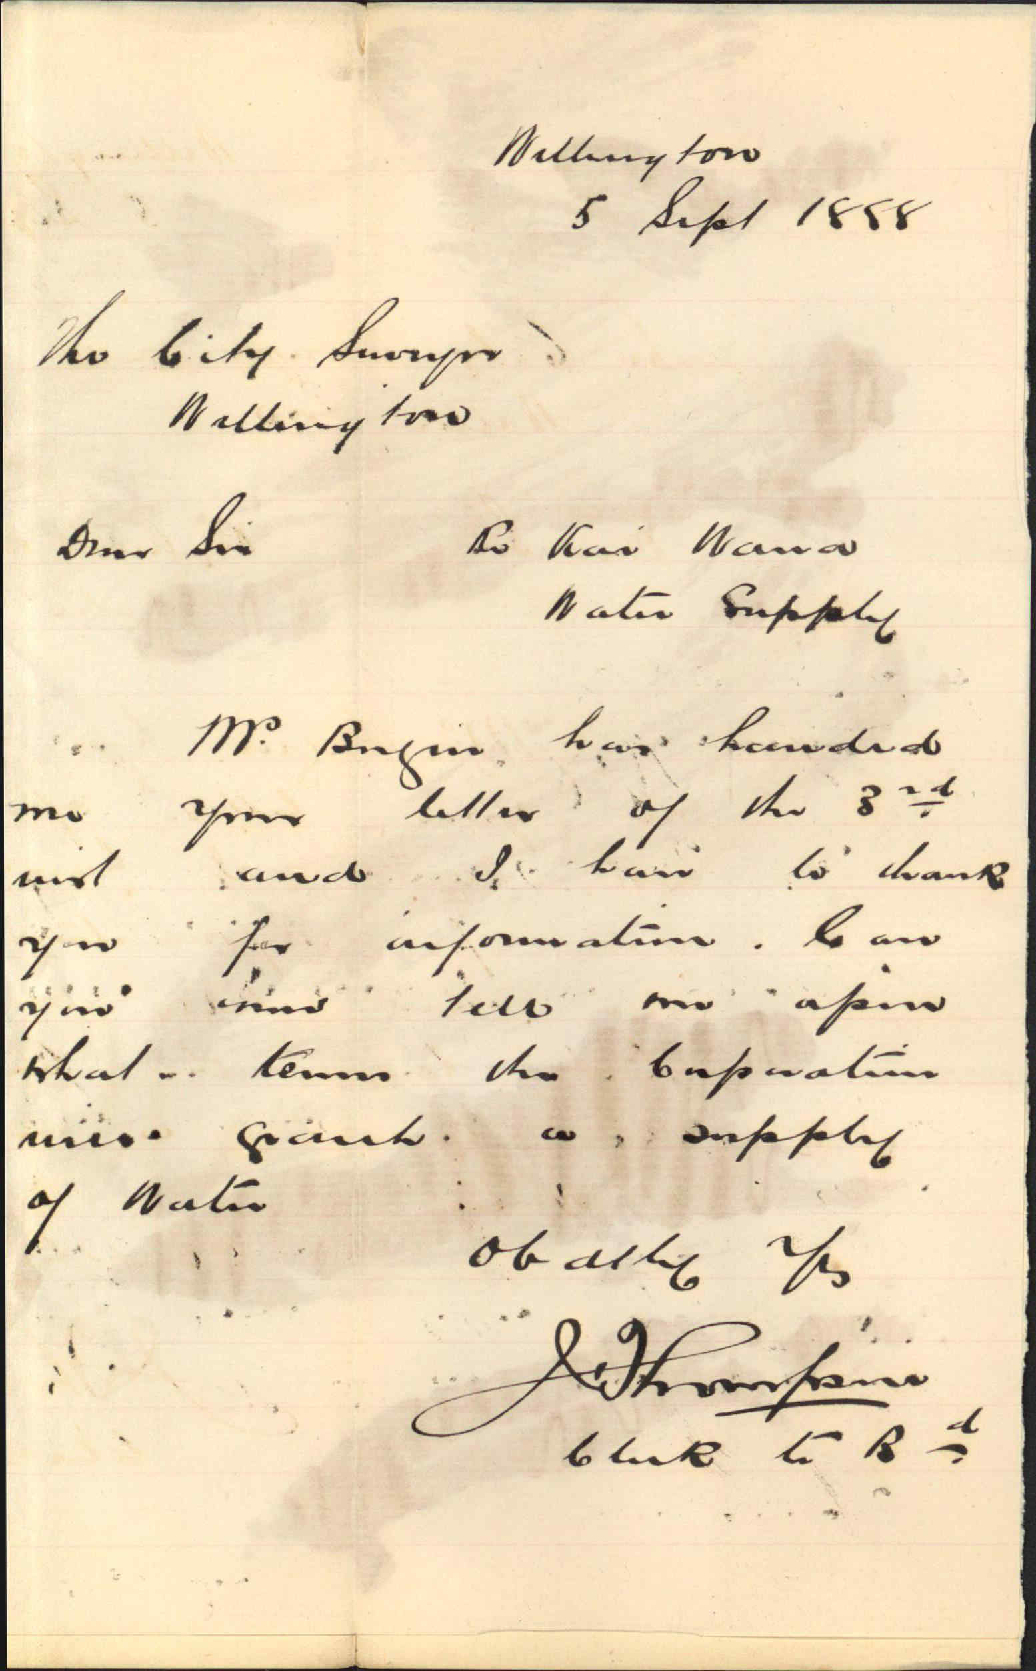 Wellington
5 Sept 1888
The City Surveyor
Wellington
Dear Sir Re Kai Wara
Water Supply
Mr. has handed
me your letter of the 3rd
inst and I have to thank
you for information. Can
you now tell me upon
what terms the Corporation
will grant a supply
of Water
Obdtly Yrs
J Thompson
Clerk to Bd